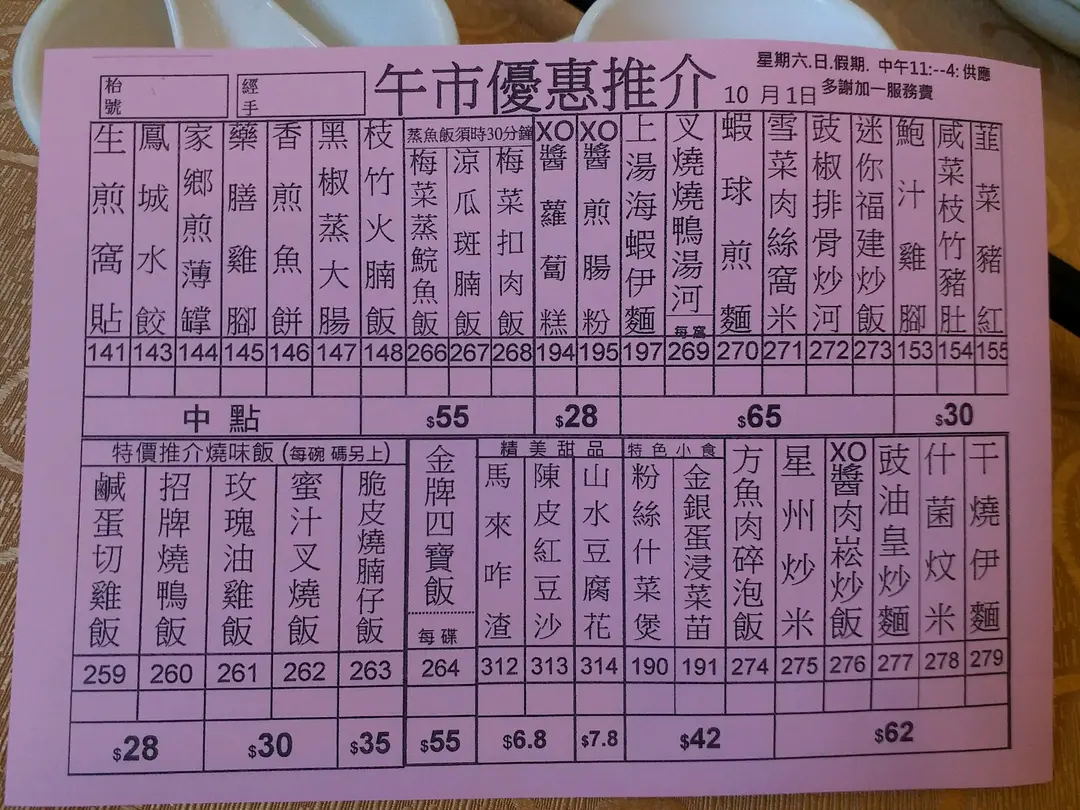 枱號
經手
午市優惠推介
10 月 1日
星期六.日.假期. 中午11:--4: 供應
多謝加一服務費
生煎窩貼
鳳城水餃
家鄉煎薄罉
藥膳雞腳
香煎魚餅
黑椒蒸大腸
枝竹火腩飯
蒸魚飯須時30分鐘
梅菜蒸鯇魚飯
涼瓜斑腩飯
梅菜扣肉飯
XO醬蘿蔔糕
XO醬煎腸粉
上湯海蝦伊麵
叉燒燒鴨湯河
每窩
蝦球煎麵
雪菜肉絲窩米
豉椒排骨炒河
迷你福建炒飯
鮑汁雞腳
咸菜枝竹豬肚
韮菜豬紅
141 143 144 145 146 147 148 266 267 268 194 195 197 269 270 271 272 273 153 154 155
中點 $55 $28 $65 $30
特價推介燒味飯 (每碗 碼另上)
鹹蛋切雞飯
招牌燒鴨飯
玫瑰油雞飯
蜜汁叉燒飯
脆皮燒腩仔飯
金牌四寶飯
每碟
精美甜品
馬來咋渣
陳皮紅豆沙
山水豆腐花
特色小食
粉絲什菜煲
金銀蛋浸菜苗
方魚肉碎泡飯
星州炒米
XO醬肉崧炒飯
豉油皇炒麵
什菌炆米
干燒伊麵
259 260 261 262 263 264 312 313 314 190 191 274 275 276 277 278 279
$28 $30 $35 $55 $6.8 $7.8 $42 $62